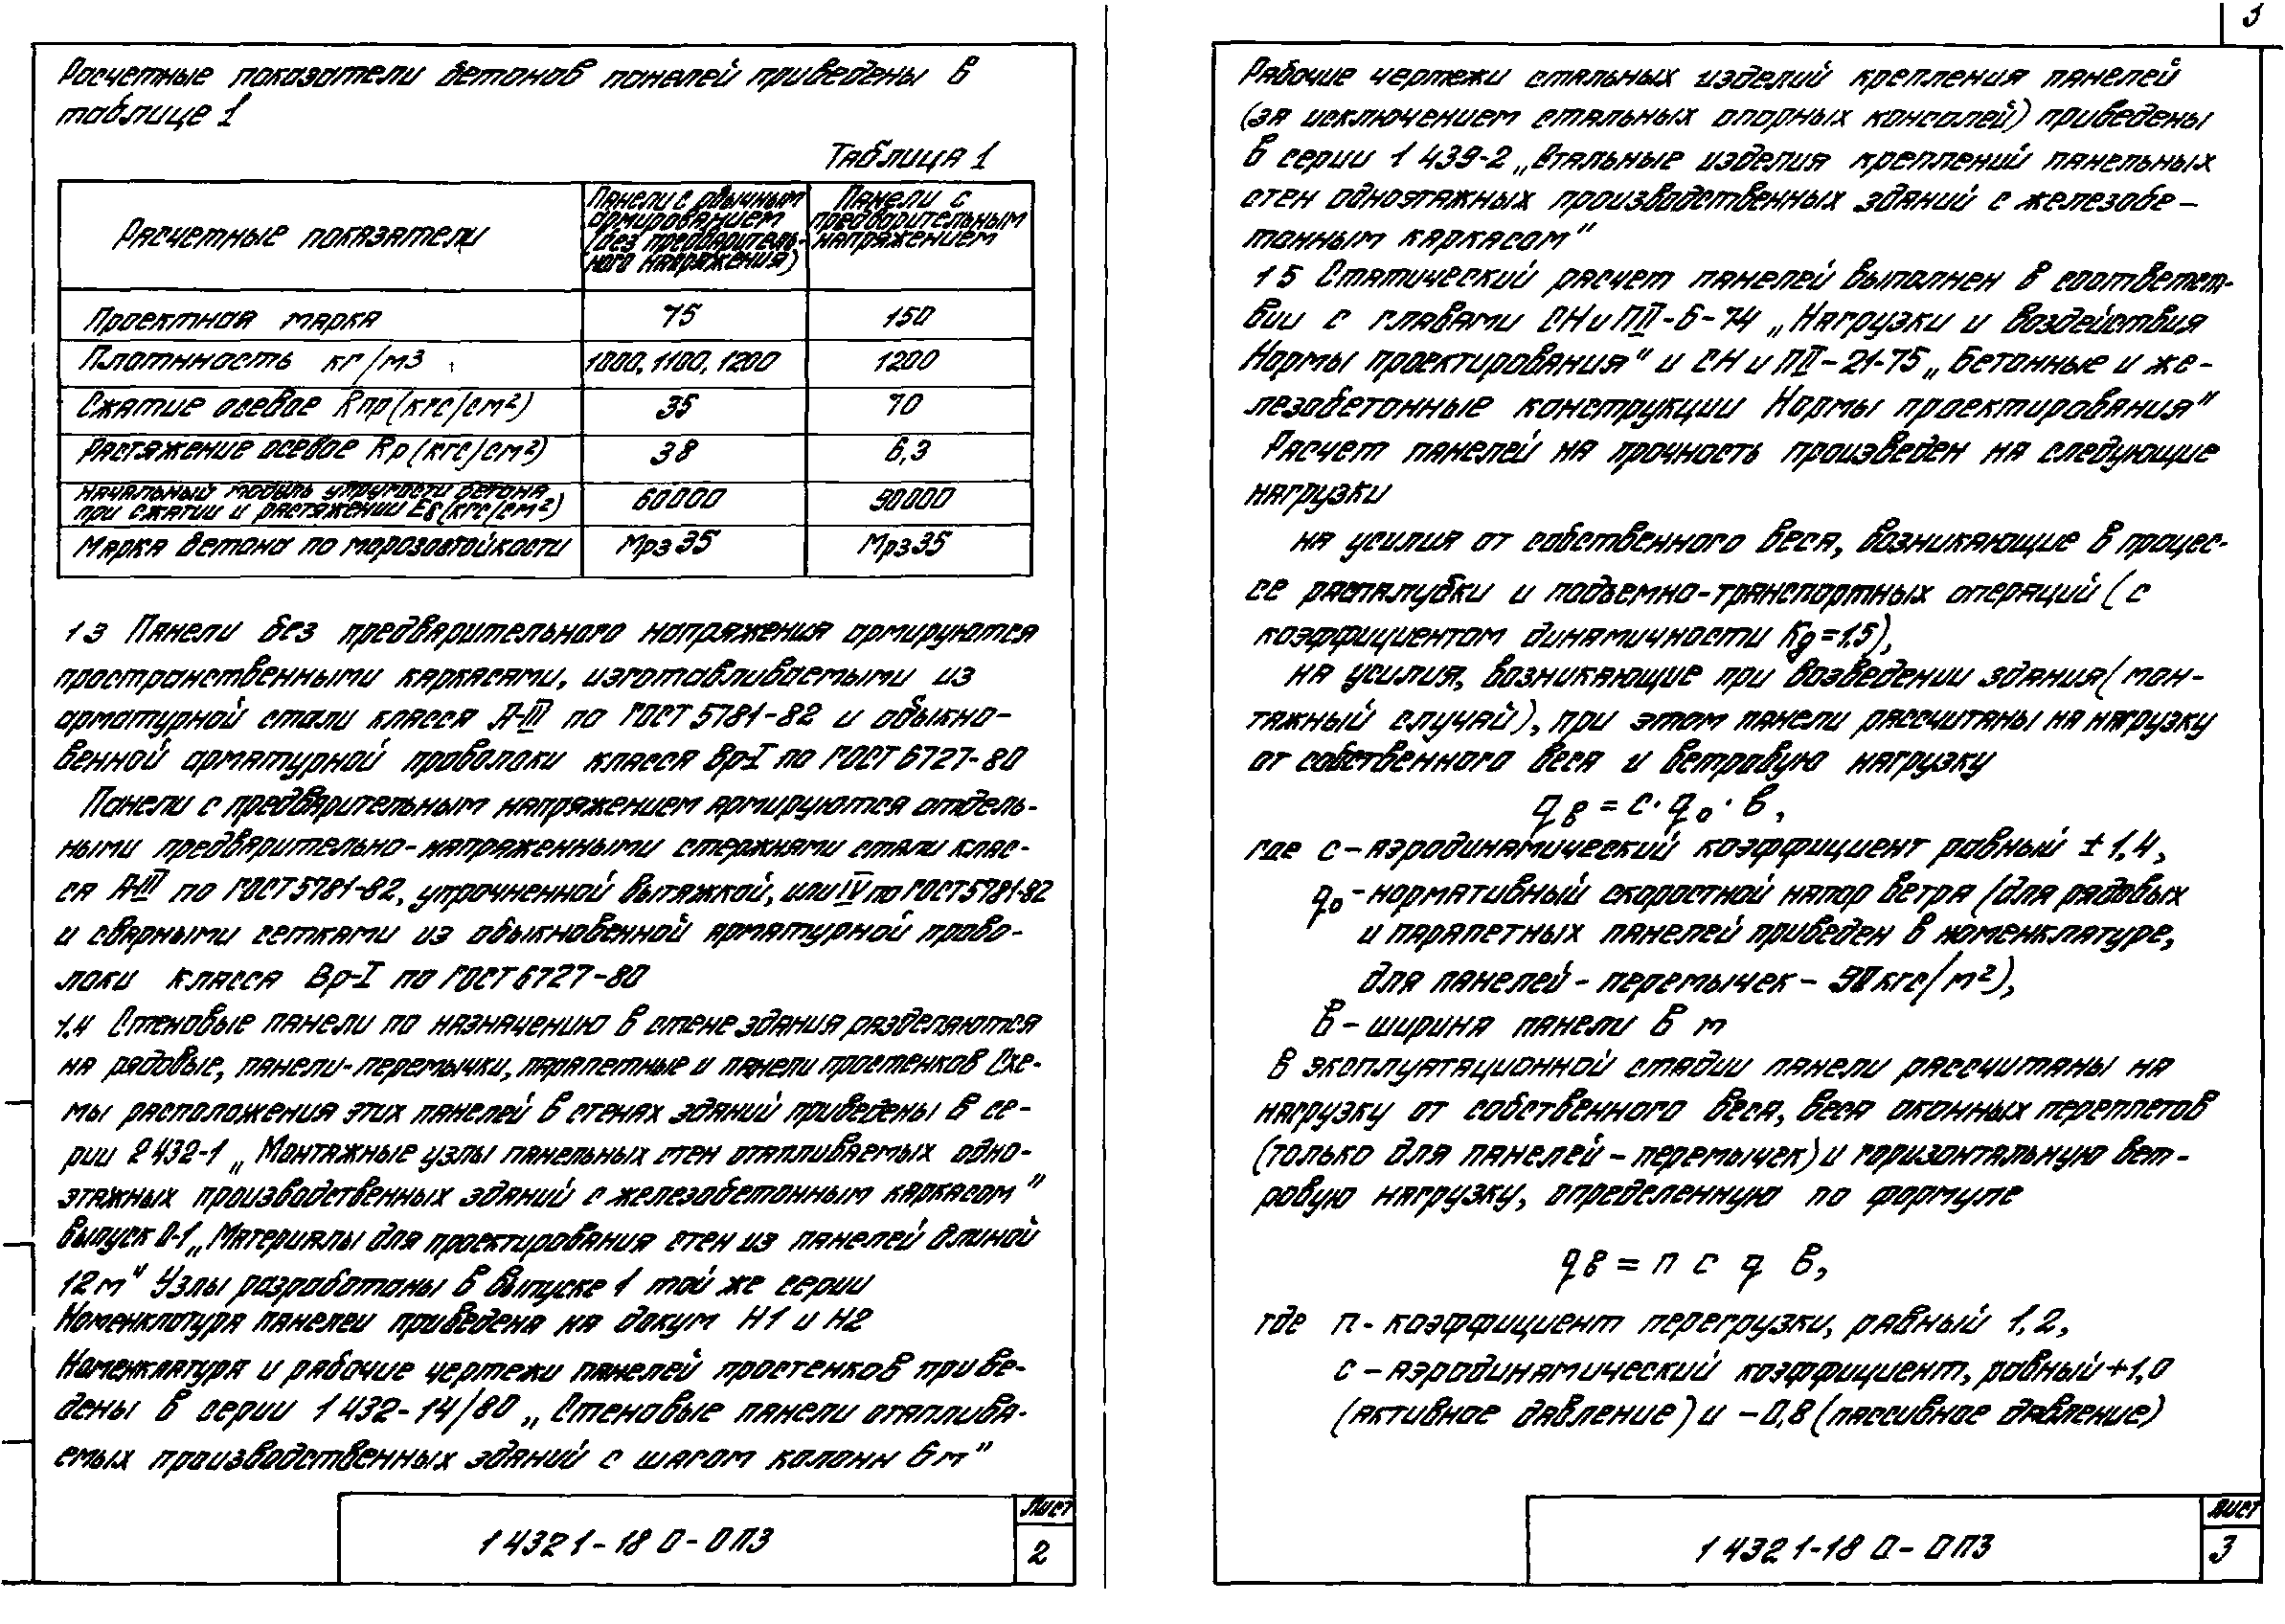 Расчетные показатели бетонов панелей приведены в
таблице 1
Таблица 1
Расчетные показатели
Панели с обычным
армированием
(без предваритель-
ного напряжения)
Панели с
предварительным
напряжением
Проектная марка 75 150
Плотнность кг/м3 1000, 1100, 1200 1200
Сжатие осевое Rпр (кгс/см²) 35 70
Растяжение осевое Rр (кгс/см²) 38 6,3
Начальный модуль упругости бетона
при сжатии и растяжении Eб (кгс/см²) 60000 90000
Марка бетона по морозостойкости Мрз 35 Мрз 35
1 3 Панели без предварительного напряжения армируются
пространственными каркасами, изготавливаемыми из
арматурной стали класса А-III по ГОСТ 5781-82 и обыкно-
венной арматурной проволоки класса Вр-I по ГОСТ 6727-80
Панели с предварительным напряжением армируются отдель-
ными предварительно-напряженными стержнями стали клас-
са А-III по ГОСТ 5781-82, упрочненной вытяжкой, или IV по ГОСТ 5781-82
и сварными сетками из обыкновенной арматурной прово-
локи класса Вр-I по ГОСТ 6727-80
1.4 Стеновые панели по назначению в стене здания разделяются
на рядовые, панели-перемычки, парапетные и панели простенков Схе-
мы расположения этих панелей в стенах зданий приведены в се-
рии 2 432-1 „Монтажные узлы панельных стен отапливаемых одно-
этажных производственных зданий с железобетонным каркасом"
выпуск 0-1 „Материалы для проектирования стен из панелей длиной
12 м" Узлы разработаны в выпуске 1 той же серии
Номенклатура панелеи приведена на докум Н1 и Н2
Номенклатура и рабочие чертежи панелей простенков приве-
дены в серии 1 432-14/80 „Стеновые панели отаплива-
емых производственных зданий с шагом колонн 6 м"
1 432 1-18 0-0ПЗ
Лист
2
3
Рабочие чертежи стальных изделий крепления панелей
(за исключением стальных опорных консолей) приведены
в серии 1 439-2 „Стальные изделия креплений панельных
стен одноэтажных производственных зданий с железобе-
тонным каркасом"
1 5 Статический расчет панелей выполнен в соответст-
вии с главами СНиП II-6-74 „Нагрузки и воздействия
Нормы проектирования" и СНиП II-21-75 „Бетонные и же-
лезобетонные конструкции Нормы проектирования"
Расчет панелей на прочность произведен на следующие
нагрузки
на усилия от собственного веса, возникающие в процес-
се распалубки и подъемно-транспортных операций (с
коэффициентом динамичности Kд = 1.5),
на усилия, возникающие при возведении здания (мон-
тажный случай), при этом панели рассчитаны на нагрузку
от собственного веса и ветровую нагрузку
qв = с · q₀ · в,
где с - аэродинамический коэффициент равный ± 1,4,
q₀ - нормативный скоростной напор ветра (для рядовых
и парапетных панелей приведен в номенклатуре,
для панелей - перемычек - 90 кгс/м²),
в - ширина панели в м
В эксплуатационной стадии панели рассчитаны на
нагрузку от собственного веса, веса оконных переплетов
(только для панелей - перемычек) и горизонтальную вет-
ровую нагрузку, определенную по формуле
qв = п с q в,
где п - коэффициент перегрузки, равный 1,2,
с - аэродинамический коэффициент, равный +1,0
(активное давление) и -0,8 (пассивное давление)
1 432 1-18 0-0ПЗ
Лист
3